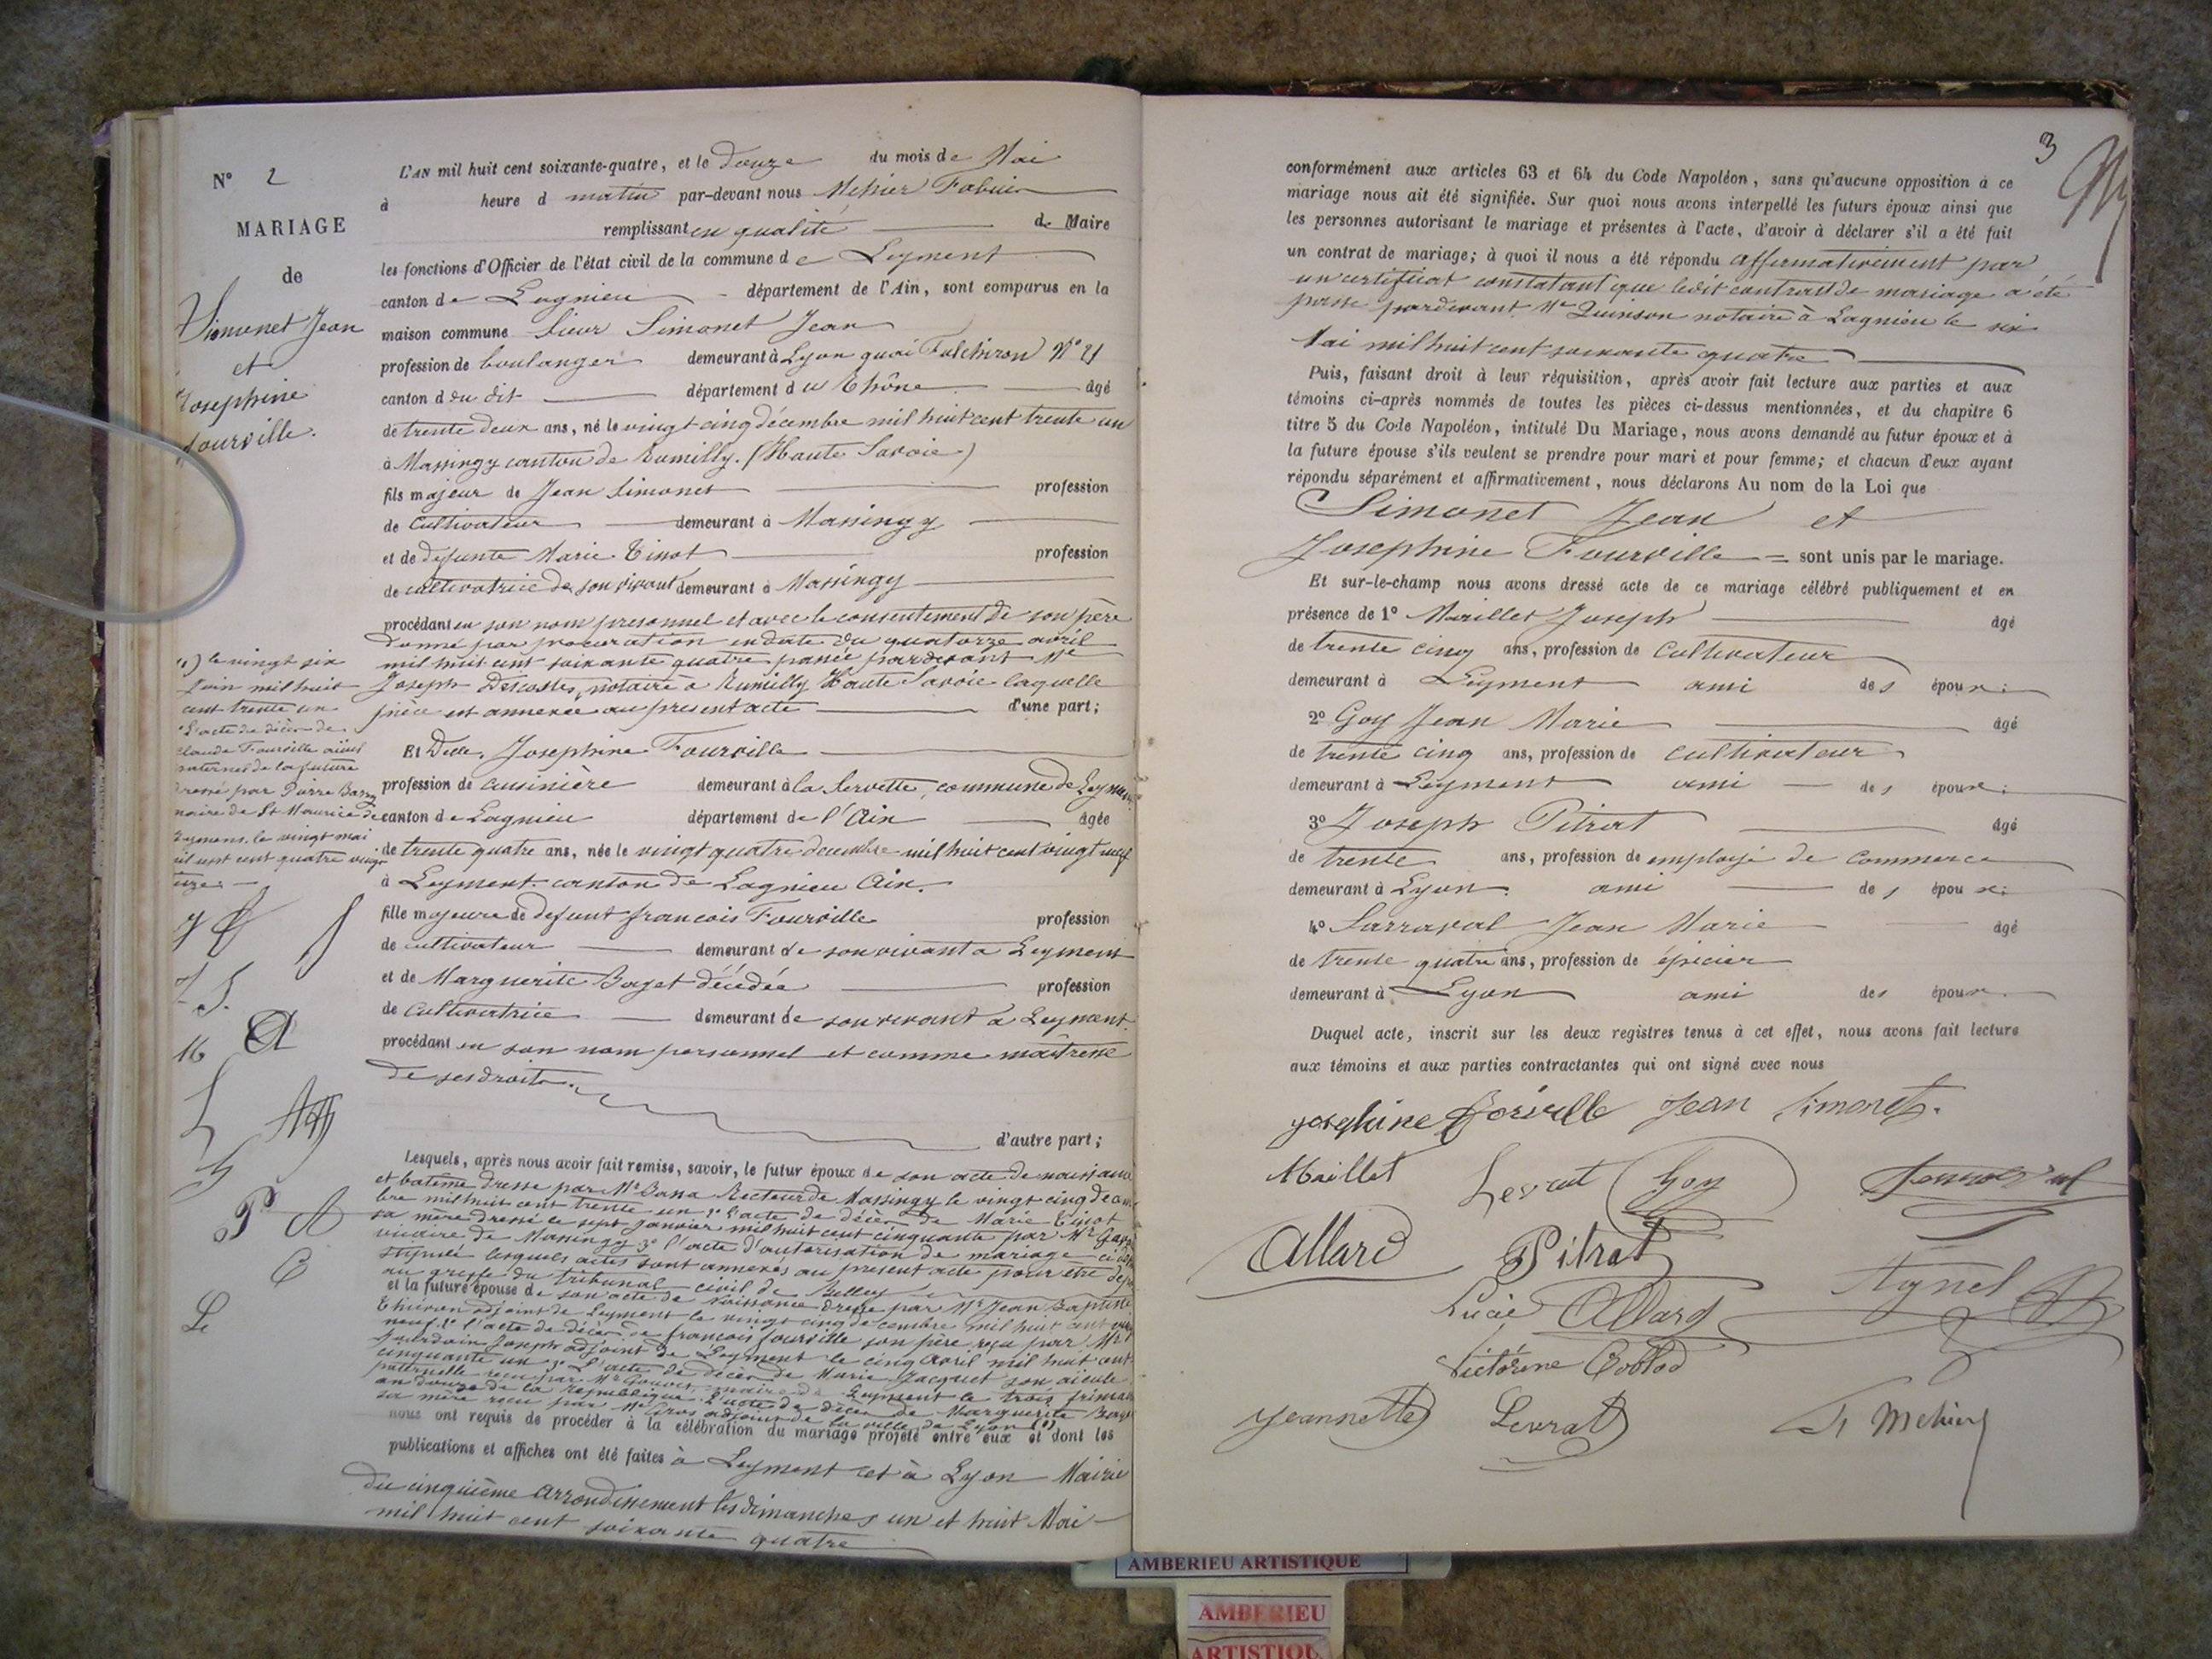 N° 2
MARIAGE
de
Simonet Jean
et
Josephine
Fourville.
L'AN mil huit cent soixante-quatre, et le douze du mois de Mai
à heure d matin par-devant nous
remplissant en qualité de Maire
les fonctions d'Officier de l'état civil de la commune de Leyment
canton de Lagnieu département de l'Ain, sont comparus en la
maison commune Sieur Simonet Jean
profession de boulanger demeurant à Lyon quai Fulchiron N° 21
canton d du dit département du Rhône âgé
de trente deux ans, né le vingt cinq décembre mil huit cent trente un
à Massingy canton de Rumilly. (Haute Savoie)
fils majeur de Jean Simonet profession
de cultivateur demeurant à Massingy
et de defunte Marie Tinot profession
de cultivatrice de son vivant demeurant à Massingy
procédant en son nom personnel et avec le consentement de son père
donné par procuration en date du quatorze avril
mil huit cent soixante quatre passée pardevant Me
Joseph Descostes, notaire à Rumilly Haute Savoie laquelle
pièce est annexée au present acte d'une part;
(1) le vingt six
Juin mil huit
cent trente un
L'acte de décès de
Claude Fourville aïeul
paternel de la future
dressé par Pierre
maire de St Maurice de
Remens le vingt mai
mil sept cent quatre vingt
Et Delle. Josephine Fourville
profession de cuisinière demeurant à la Servette, commune de Leyment
canton de Lagnieu département de l'Ain âgée
de trente quatre ans, née le vingt quatre decembre mil huit cent vingt neuf
à Leyment canton de Lagnieu Ain.
fille majeure de defunt francois Fourville profession
de cultivateur demeurant de son vivant à Leyment
et de Marguerite Boyet décédée profession
de Cultivatrice demeurant de son vivant à Leyment.
procédant en son nom personnel et comme maitresse
de ses droits.
d'autre part;
Lesquels, après nous avoir fait remise, savoir, le futur époux de son acte de naissance
et batême dressé par Mr Bassa Recteur de Massingy le vingt cinq decem
bre mil huit cent trente un 2° l'acte de décès de Marie Tinot
sa mère dressé le sept janvier mil huit cent cinquante par Mr
vicaire de Massingy 3° l'acte d'autorisation de mariage
stipulé lesquels actes sont annexés au present acte pour etre
au greffe du tribunal civil de Belley
et la future épouse de son acte de naissance dressé par Mr Jean Baptiste
adjoint de Leyment le vingt cinq decembre mil huit cent
neuf 2° l'acte de décès de francois fourville son père reçu par Mr
Joseph adjoint de Leyment le cinq avril mil huit cent
cinquante un 3° L'acte de décès de Marie Jacquet son aïeule
paternelle recu par Mr maire de Leyment le trois frimaire
an douze de la République L'acte de décès de Marguerite
sa mère recu par Mr Gros adjoint de la ville de Lyon (1)
nous ont requis de procéder à la célébration du mariage projeté entre eux et dont les
publications et affiches ont été faites à Leyment et à Lyon Mairie
du cinquième arrondissement les dimanches un et huit Mai
mil huit cent soixante quatre
3
conformément aux articles 63 et 64 du Code Napoléon, sans qu'aucune opposition à ce
mariage nous ait été signifiée. Sur quoi nous avons interpellé les futurs époux ainsi que
les personnes autorisant le mariage et présentes à l'acte, d'avoir à déclarer s'il a été fait
un contrat de mariage; à quoi il nous a été répondu affirmativement par
un certificat constatant que ledit contrat de mariage a été
passé pardevant Me Quinson notaire à Lagnieu le six
Mai mil huit cent soixante quatre
Puis, faisant droit à leur réquisition, après avoir fait lecture aux parties et aux
témoins ci-après nommés de toutes les pièces ci-dessus mentionnées, et du chapitre 6
titre 5 du Code Napoléon, intitulé Du Mariage, nous avons demandé au futur époux et à
la future épouse s'ils veulent se prendre pour mari et pour femme; et chacun d'eux ayant
répondu séparément et affirmativement, nous déclarons Au nom de la Loi que
Simonet Jean et
Josephine Fourville = sont unis par le mariage.
Et sur-le-champ nous avons dressé acte de ce mariage célébré publiquement et en
présence de 1° Maillet Joseph âgé
de trente cinq ans, profession de Cultivateur
demeurant à Leyment ami des époux;
2° Goy Jean Marie âgé
de trente cinq ans, profession de cultivateur
demeurant à Leyment ami des époux;
3° Joseph Pitrat âgé
de trente ans, profession de employé de commerce
demeurant à Lyon. ami des époux;
4° Sarraval Jean Marie âgé
de trente quatre ans, profession de épicier
demeurant à Lyon ami des époux.
Duquel acte, inscrit sur les deux registres tenus à cet effet, nous avons fait lecture
aux témoins et aux parties contractantes qui ont signé avec nous
Josephine Jean Simonet.
Maillet Levrat Goy
Allard Pitrat Agnel
Lucie Allard
Victorine
Jeannette Levrat
AMBERIEU ARTISTIQUE
AMBERIEU
ARTISTIQUE